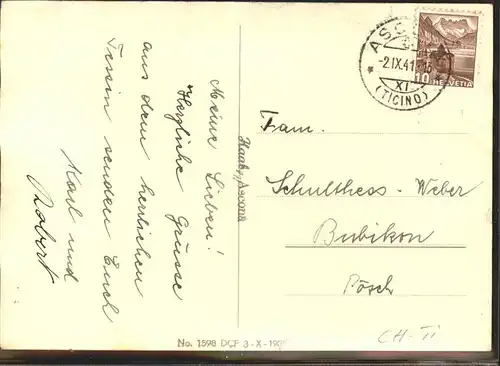 Meine Lieben!
Herzliche Grüsse
aus dem herrlichen
Tessin senden Euch
Karl und
Robert
Haab, Ascona
No. 1598 DCF 3-X-19
AS
-2.IX.41
XI
(TICINO)
10 HELVETIA
Fam.
Schulthess-Weber
Bubikon
Pösch
CH-Ti